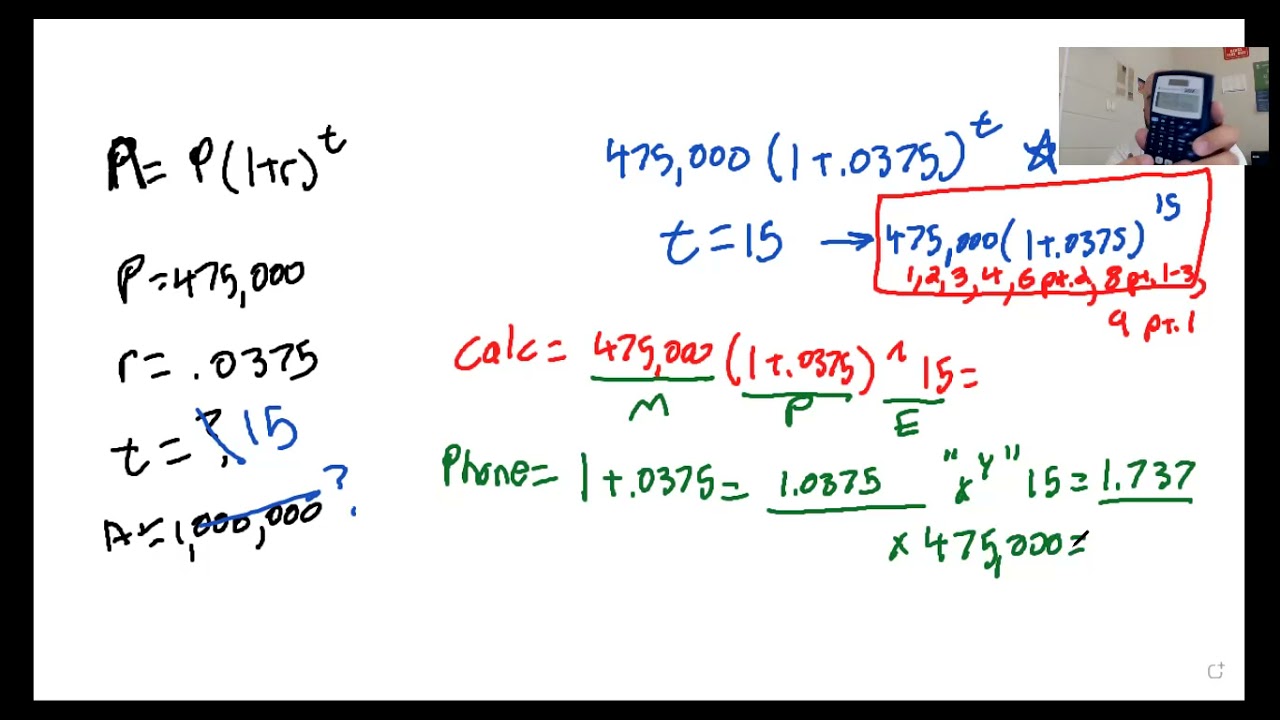 A = P(1+r)^t
P = 475,000
r = .0375
t = ? 15
A = 1,000,000 ?
475,000 (1+.0375)^t
t = 15 → 475,000(1+.0375)^15
1, 2, 3, 4, 6 pt. 2, 8 pt. 1-3,
9 pt. 1
Calc = 475,000 (1+.0375) ^ 15 =
M P E
Phone = 1+.0375 = 1.0375 "x^y" 15 = 1.737
x 475,000 =